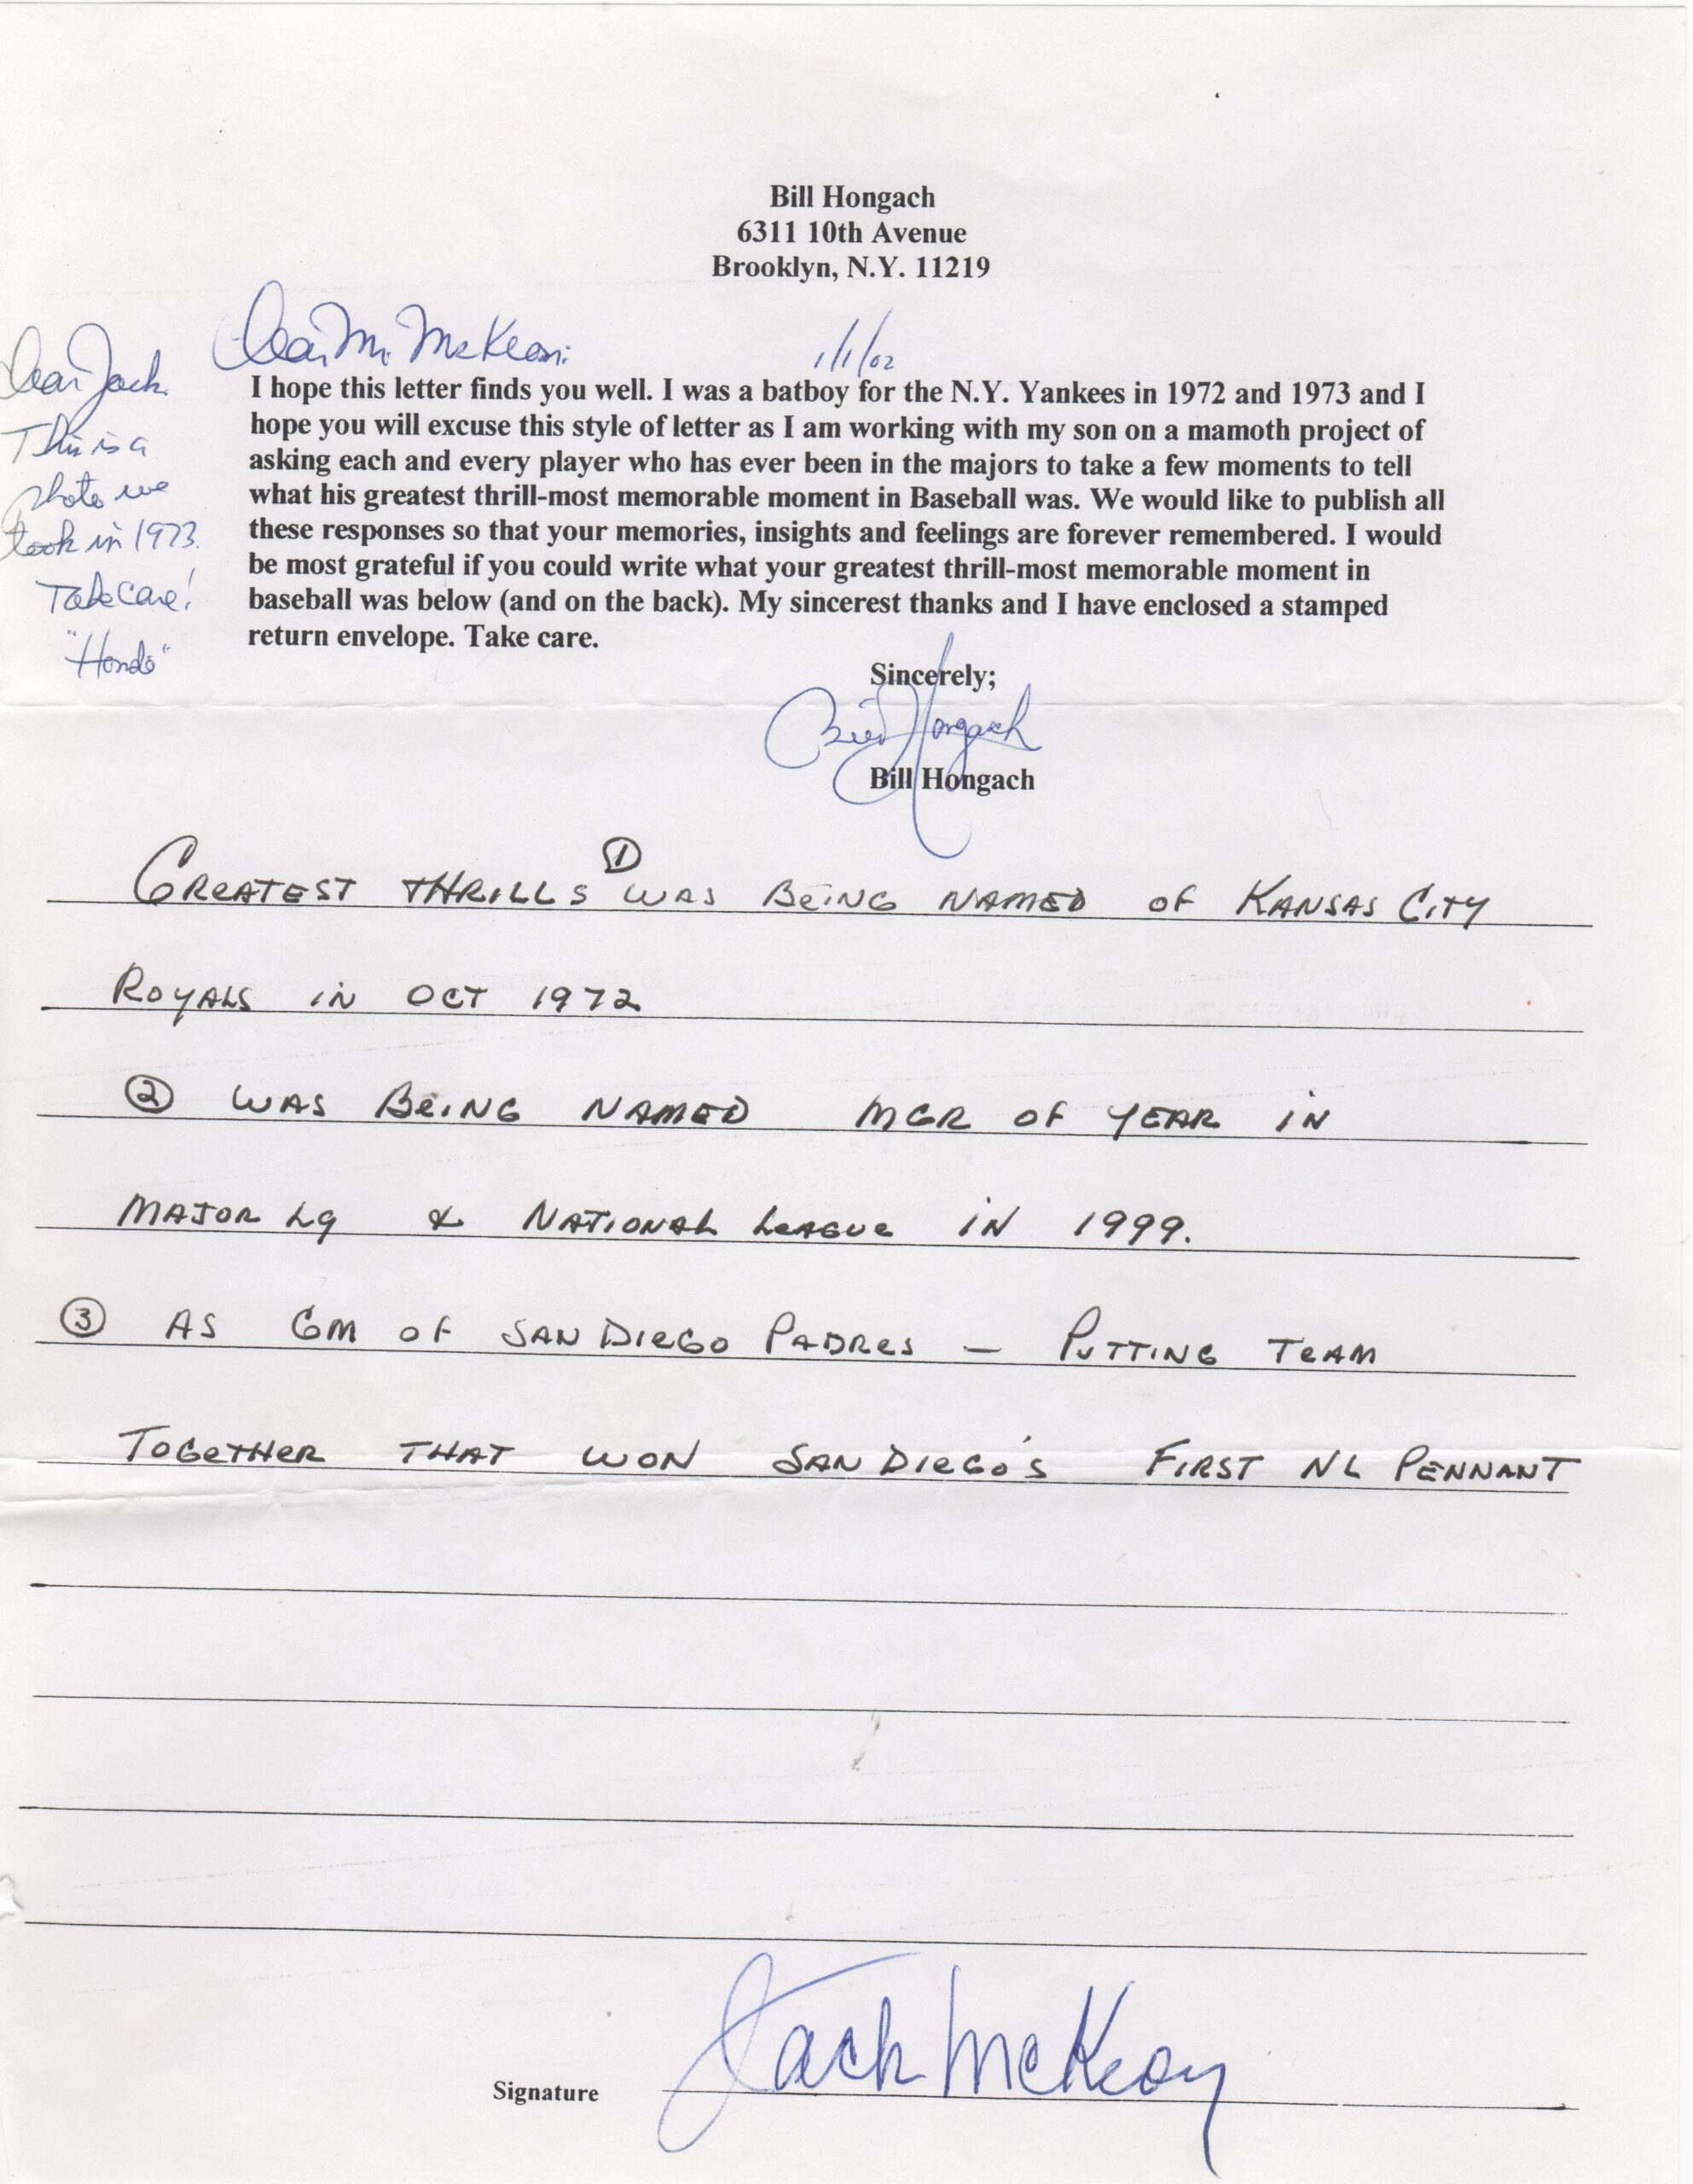 Bill Hongach
6311 10th Avenue
Brooklyn, N.Y. 11219
Dear Mr. McKeon:
1/1/02
Dear Jack.
This is a
photo we
took in 1973.
Take Care!
"Hondo"
I hope this letter finds you well. I was a batboy for the N.Y. Yankees in 1972 and 1973 and I
hope you will excuse this style of letter as I am working with my son on a mamoth project of
asking each and every player who has ever been in the majors to take a few moments to tell
what his greatest thrill-most memorable moment in Baseball was. We would like to publish all
these responses so that your memories, insights and feelings are forever remembered. I would
be most grateful if you could write what your greatest thrill-most memorable moment in
baseball was below (and on the back). My sincerest thanks and I have enclosed a stamped
return envelope. Take care.
Sincerely;
Bill Hongach
Bill Hongach
GREATEST THRILLS ① WAS BEING NAMED OF KANSAS CITY
ROYALS IN OCT 1972
② WAS BEING NAMED MGR OF YEAR IN
MAJOR Lg & NATIONAL LEAGUE IN 1999.
③ AS GM OF SAN DIEGO PADRES — PUTTING TEAM
TOGETHER THAT WON SAN DIEGO'S FIRST NL PENNANT
Jack McKeon
Signature